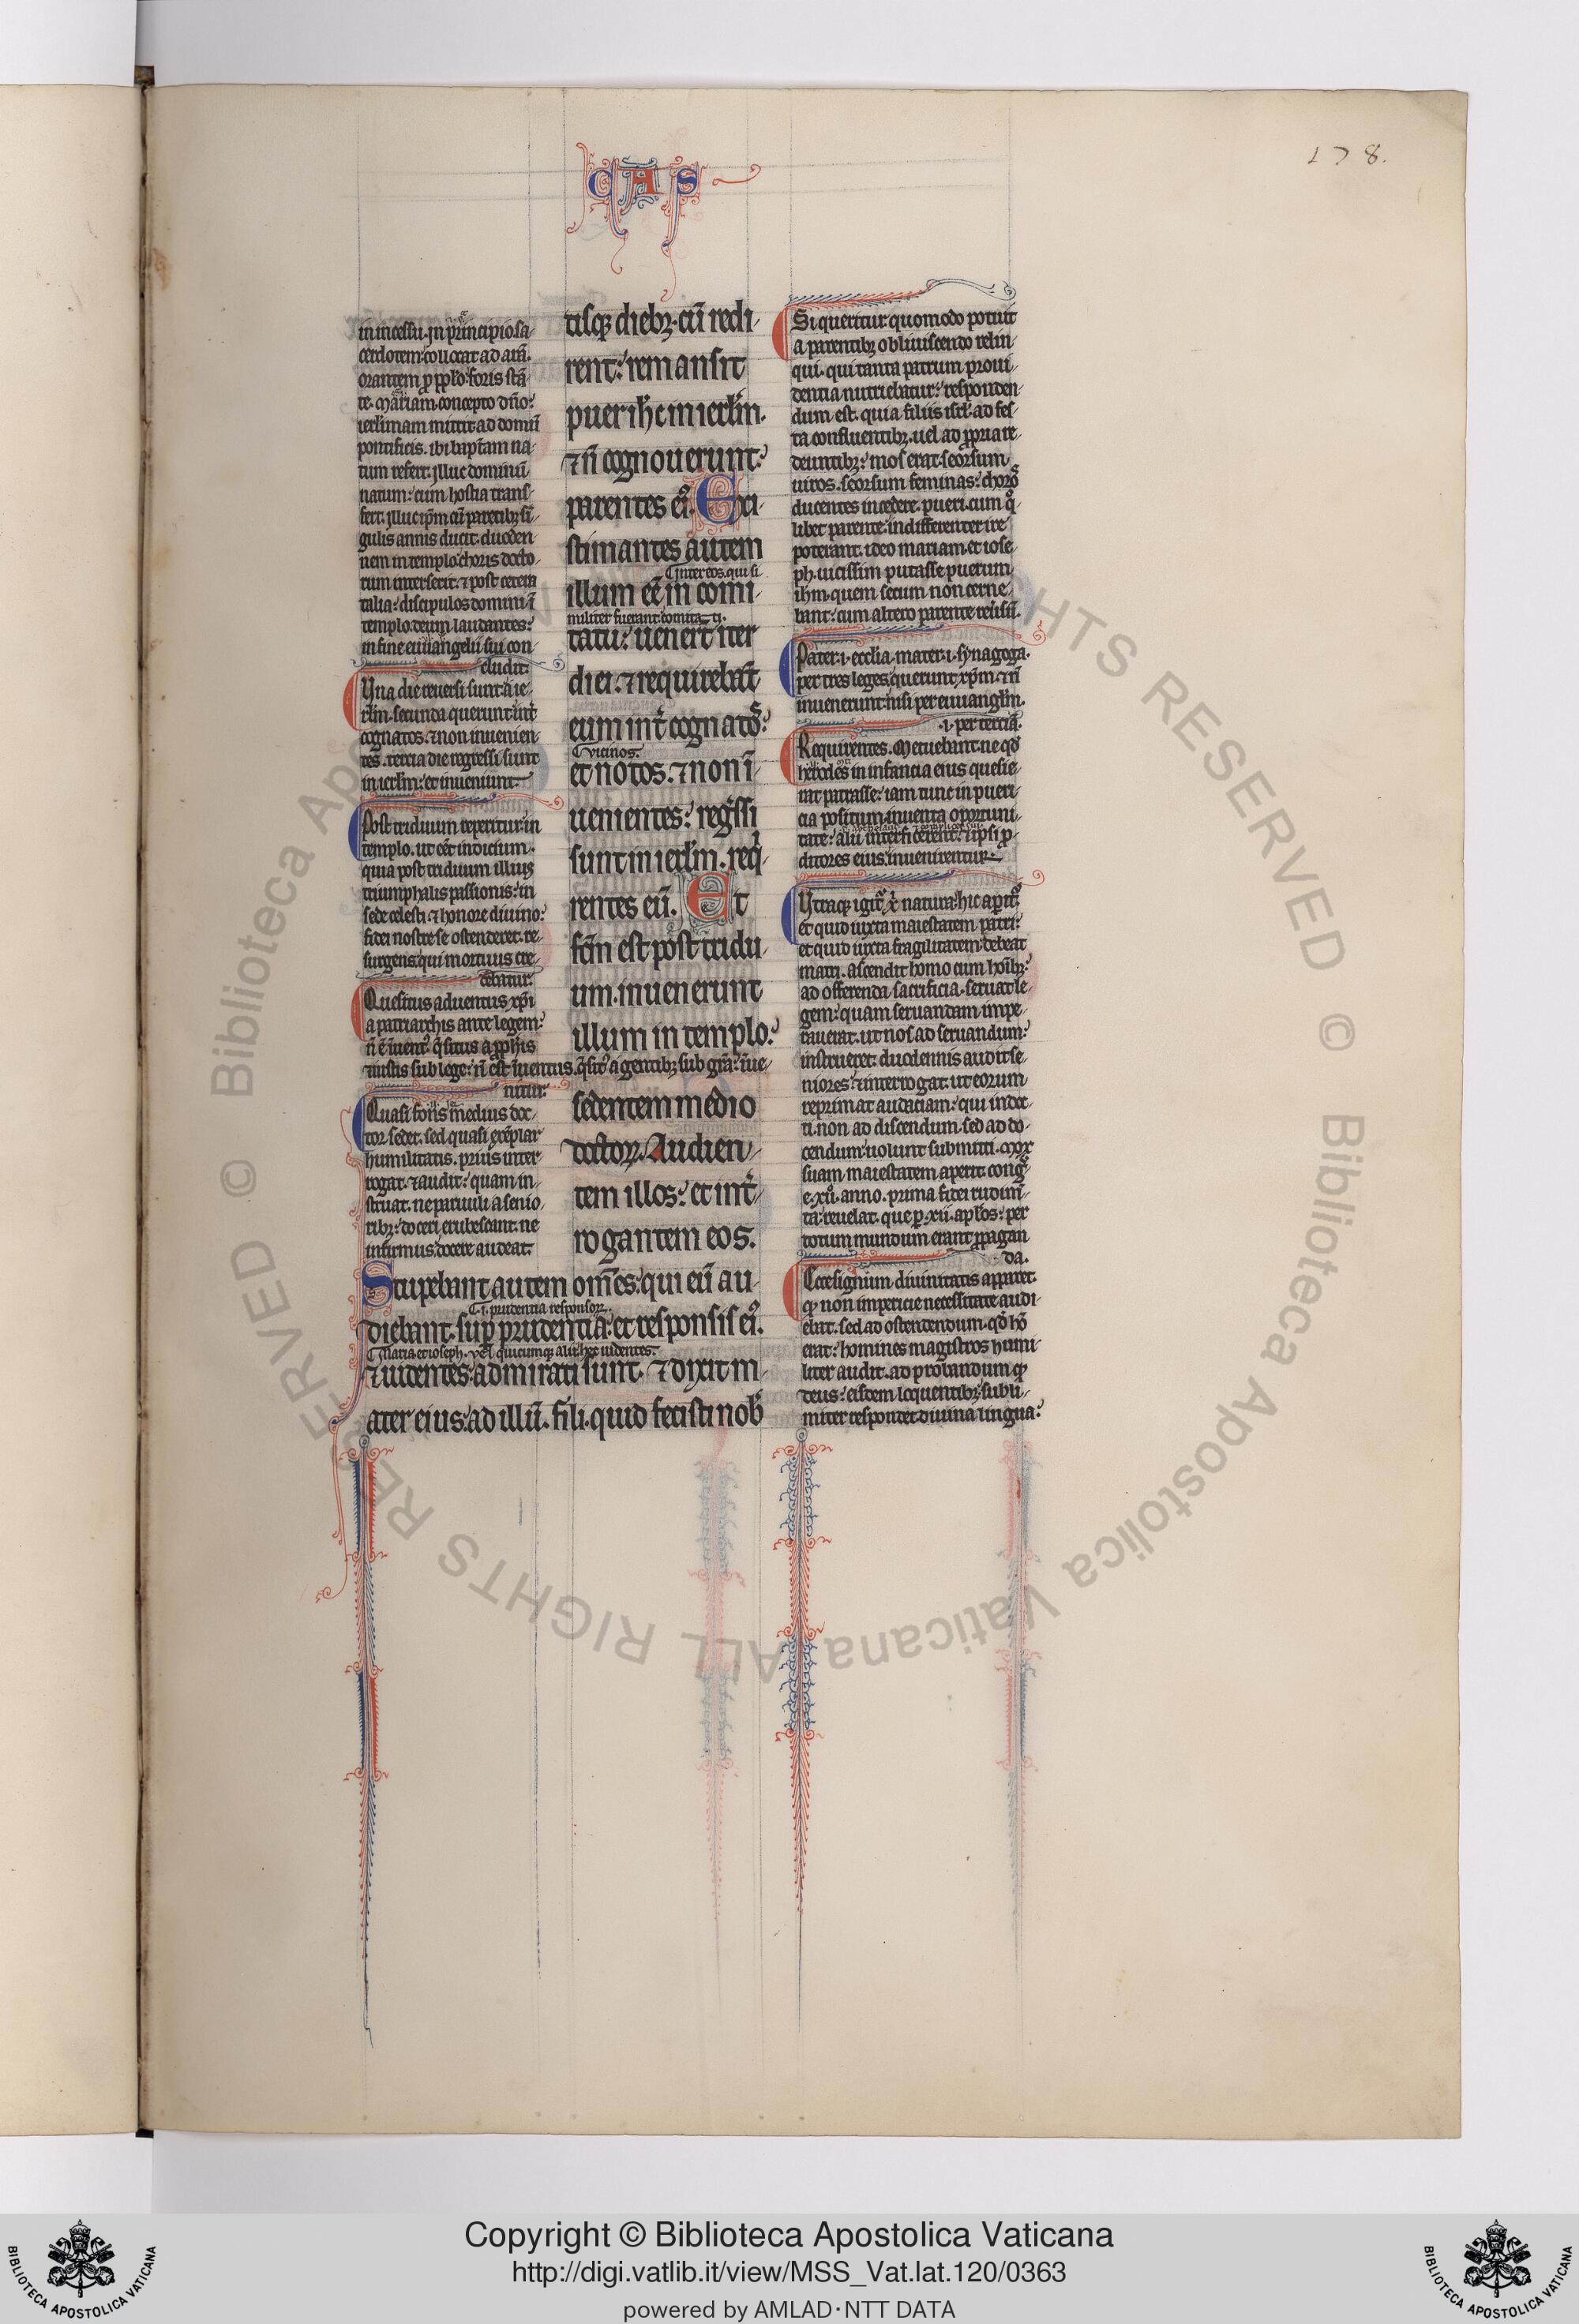 178.
CAS
in incessu. In principio sa-
cerdotem collocat ad arā.
orantem ꝓ pp̄lo foris stā-
te. Mariam concepto dño:
ierłimam mittit ad domū
pontificis. ibi bapt̄am na-
tum refert: illuc dominū
natum: cum hostia trans-
fert. illuc ip̄m cū parētibꝫ sī-
gulis annis ducit. duoden
nem in templo choris docto-
rum inserit. ⁊ post cetera
talia: discipulos domini ī
templo deum laudantes:
in fine euuangelii sui con-
cludit.
Vna die reuersi sunt a ie-
rłm. secunda querunt int̄
cognatos. ⁊ non inuenien
tes. tercia die regressi sunt
in ierłm: et inueniunt.
Post triduum reperitur in
templo. ut eēt indicium.
quia post triduum illius
triumphalis passionis: in
sede celesti ⁊ honore diuino:
fidei nostre se ostenderet. re-
surgens qui mortuus cre-
debatur.
Quesitus aduentus xp̄i
a patriarchis ante legem:
n̄ ē īuent᾽. q̄situs a ꝓph̄is
⁊ iustis sub lege: n̄ est īuentus. q̄sit᾽ a gentibꝫ sub grā: īue-
nitur.
Quasi fons medius doc-
tor sedet. sed quasi exēplar
humilitatis. prius inter-
rogat. ⁊ audit: quam in-
struat. ne paruuli a senio-
ribꝫ: doceri erubescant. ne
infirmus docere audeat.
tisqꝫ diebꝫ. cū redi-
rent: remansit
puer ih̄c in ierłm.
⁊ n̄ cognouerunt:
parentes ei᾽. Exi-
stimantes autem
Inter eos. qui si-
illum eē in comi-
militer fuerant comitati.
tatu: uener̄t iter
diei. ⁊ requirebāt
eum int̄ cognatos:
vicinos.
et notos. ⁊ non ī-
uenientes: reg̃ssi
sunt in ierłm. req̇-
rentes eū. Et
fc̄m est post tridu-
um. inuenerunt
illum in templo:
sedentem medio
doctoꝝ. Audien-
tem illos: et int̄-
rogantem eos.
Stupebant autem om̄es: qui eū au-
.i. prudentia responsoꝝ.
diebant. suꝑ prudentia: et responsis ei᾽.
Maria et ioseph. vel quicumqꝫ alii hec uidentes.
⁊ uidentes: admirati sunt. ⁊ dixit m-
ater eius: ad illū. fili. quid fecisti nob̄
Si queritur quomodo potuit
a parentibꝫ obliuiscendo relin-
qui. qui tanta patrum proui-
dentia nutriebatur: responden-
dum est. quia filiis isrł. ad fes-
ta confluentibꝫ. uel ad ꝓpria re-
deuntibꝫ: mos erat. seorsum
uiros. seorsum feminas: choros
ducentes incedere. pueri. cum q̊-
libet parente: indifferenter ire
poterant. ideo mariam. et iose-
ph. uicissim putasse puerum
ihm̄. quem secum non cerne-
bant: cum altero parente reūsū.
Pater .i. ecclia. mater .i. synagoga.
per tres leges querunt xp̄m. ⁊ n̄
inuenerunt: nisi per euuangłm.
.i. per terciā.
Requirentes. Metuebant. ne qd̄
herodes in infancia eius quesie-
rat patrasse: iam tunc in pueri-
cia positum. inuenta oportuni-
tate: alii interficerent: ⁊ ipsi ꝓ-
ditores eius: inuenirentur.
Vtraqꝫ igit᾽ x̄ natura: hic apit᾽.
et quid iuxta maiestatem patri:
et quid iuxta fragilitatem debeat
matri. ascendit homo cum hoībꝫ:
ad offerenda sacrificia. seruat le-
gem: quam seruandam impe-
rauerat. ut nos ad seruandum:
instrueret. duodennis audit se-
niores: ⁊ interrogat. ut eorum
reprimat audaciam: qui indoc-
ti. non ad discendum. sed ad do-
cendum uolunt submitti. mox
suam maiestatem aperit. cong̃-
e. xii᾽. anno. prima fidei rudimī-
ta: reuelat. que ꝑ .xii. ap̄los: per
totum mundum erant ꝓpagan
da.
Ecce signum diuinitatis apparet.
qꝫ non impericie necessitate audi-
ebat. sed ad ostendendum. qd̄ hō
erat: homines magistros humi-
liter audit. ad probandum qꝫ
deus: eisdem loquentibꝫ: subli-
miter respondet diuina lingua:
Copyright © Biblioteca Apostolica Vaticana
http://digi.vatlib.it/view/MSS_Vat.lat.120/0363
powered by AMLAD·NTT DATA
© Biblioteca Apostolica Vaticana ALL RIGHTS RESERVED
BIBLIOTECA APOSTOLICA VATICANA
BIBLIOTECA APOSTOLICA VATICANA